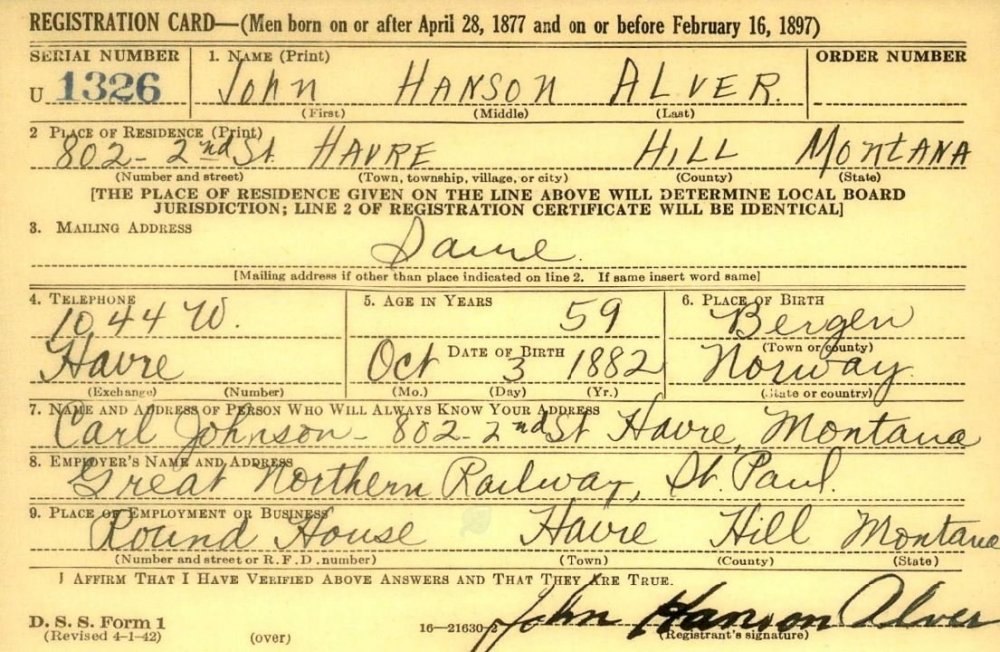 REGISTRATION CARD—(Men born on or after April 28, 1877 and on or before February 16, 1897)
SERIAL NUMBER 1. NAME (Print) ORDER NUMBER
U 1326 JOHN HANSON ALVER.
(First) (Middle) (Last)
2 PLACE OF RESIDENCE (Print)
802- 2nd St. HAVRE HILL MONTANA
(Number and street) (Town, township, village, or city) (County) (State)
[THE PLACE OF RESIDENCE GIVEN ON THE LINE ABOVE WILL DETERMINE LOCAL BOARD
JURISDICTION; LINE 2 OF REGISTRATION CERTIFICATE WILL BE IDENTICAL]
3. MAILING ADDRESS
Same.
[Mailing address if other than place indicated on line 2. If same insert word same]
4. TELEPHONE 5. AGE IN YEARS 6. PLACE OF BIRTH
1044 W. 59 Bergen
DATE OF BIRTH (Town or county)
Havre Oct 3 1882 Norway.
(Exchange) (Number) (Mo.) (Day) (Yr.) (State or country)
7. NAME AND ADDRESS OF PERSON WHO WILL ALWAYS KNOW YOUR ADDRESS
Carl Johnson - 802-2nd St Havre, Montana
8. EMPLOYER'S NAME AND ADDRESS
Great Northern Railway, St. Paul.
9. PLACE OF EMPLOYMENT OR BUSINESS
Round House Havre Hill Montana
(Number and street or R.F.D. number) (Town) (County) (State)
I AFFIRM THAT I HAVE VERIFIED ABOVE ANSWERS AND THAT THEY ARE TRUE.
D. S. S. Form 1 John Hanson Alver
(Revised 4-1-42) (over) 16—21630-2 (Registrant's signature)